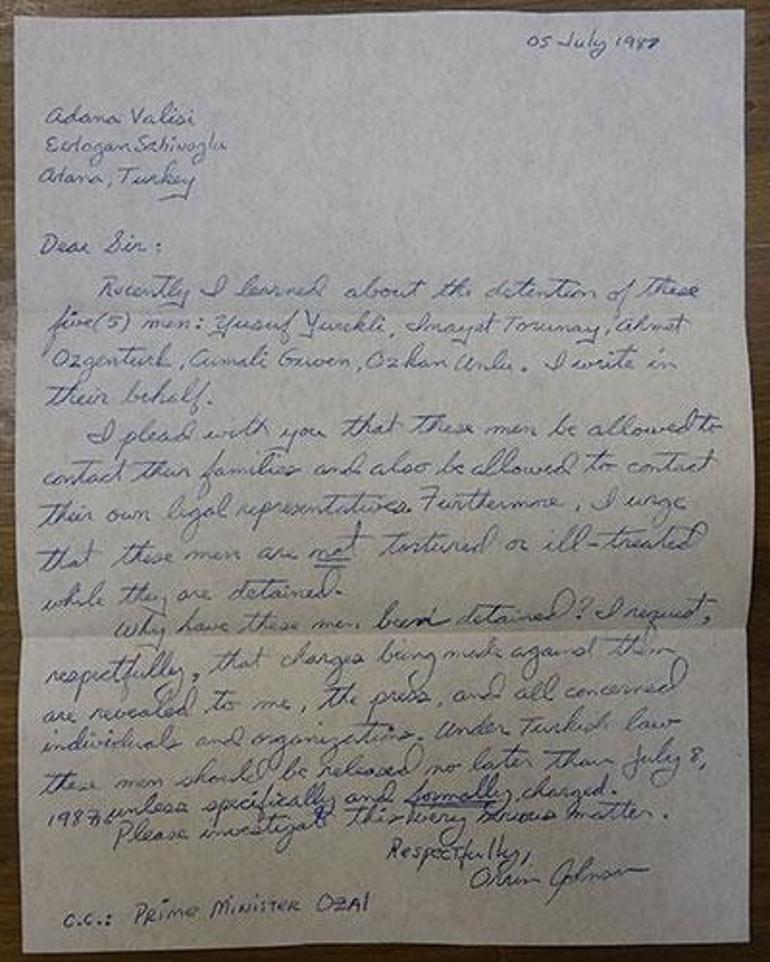 05 July 1987
Adana Valisi
Erdogan Sahinoglu
Adana, Turkey
Dear Sir:
Recently I learned about the detention of these
five (5) men: Yusuf Yurekli, Inayet Torunay, Ahmet
Ozgenturk, Cumali Guven, Ozkan Unlu. I write in
their behalf.
I plead with you that these men be allowed to
contact their families and also be allowed to contact
their own legal representatives. Furthermore, I urge
that these men are not tortured or ill-treated
while they are detained.
Why have these men been detained? I request,
respectfully, that charges being made against them
are revealed to me, the press, and all concerned
individuals and organizations. Under Turkish law
these men should be released no later than July 8,
1987, unless specifically and formally charged.
Please investigate this very serious matter.
Respectfully,
Orrin Johnson
C.C.: PRIME MINISTER OZAl